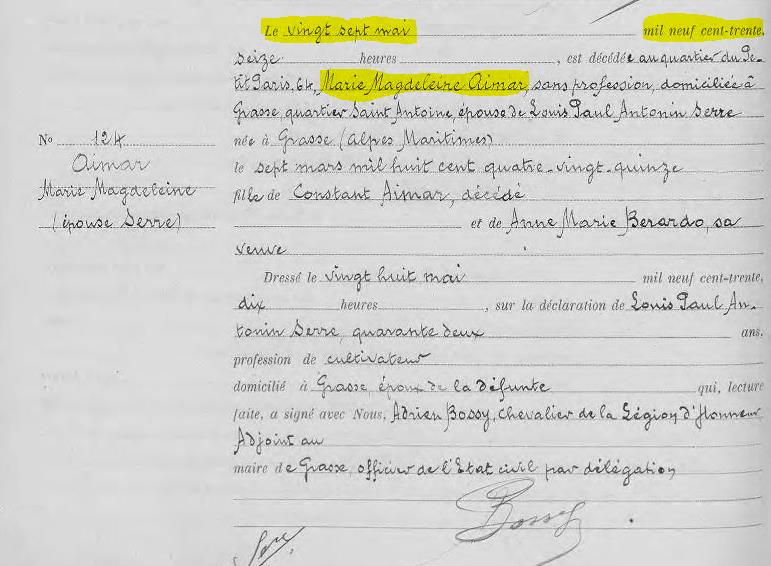 Le vingt sept mai mil neuf cent-trente,
seize heures, est décédée au quartier du Pe-
tit Paris, 64, Marie Magdeleine Aimar, sans profession, domiciliée à
Grasse, quartier Saint Antoine, épouse de Louis Paul Antonin Serre
née à Grasse (Alpes Maritimes)
le sept mars mil huit cent quatre-vingt-quinze
fille de Constant Aimar, décédé
et de Anne Marie Berardo, sa
veuve
No 124
Aimar
Marie Magdeleine
(épouse Serre)
Dressé le vingt huit mai mil neuf cent-trente,
dix heures, sur la déclaration de Louis Paul An-
tonin Serre, quarante deux ans,
profession de cultivateur
domicilié à Grasse, époux de la défunte qui, lecture
faite, a signé avec Nous, Adrien Bossy, Chevalier de la Légion d'Honneur
Adjoint au
maire de Grasse, officier de l'Etat civil par délégation
Bossy
Serre